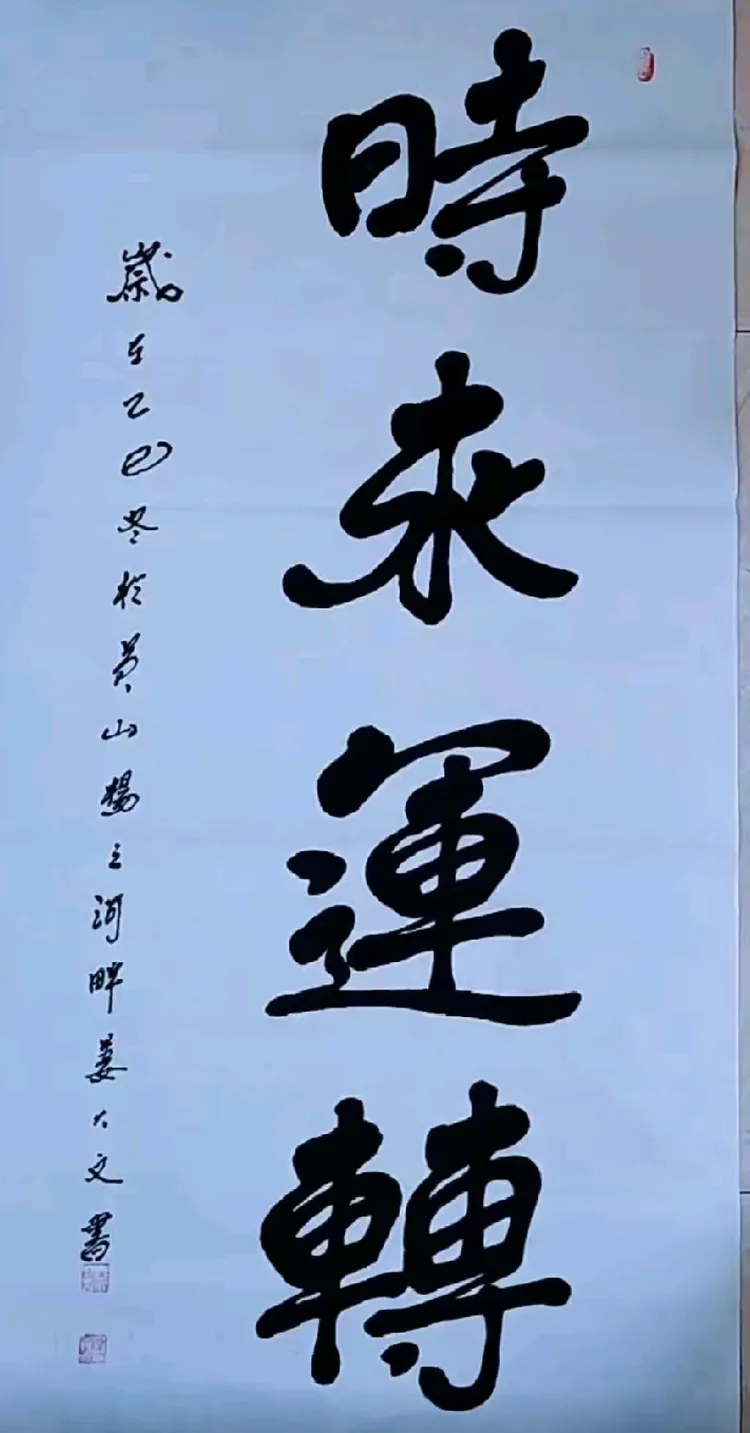 時来運轉
歲在乙巳冬於黄山楊之河畔姜大文書